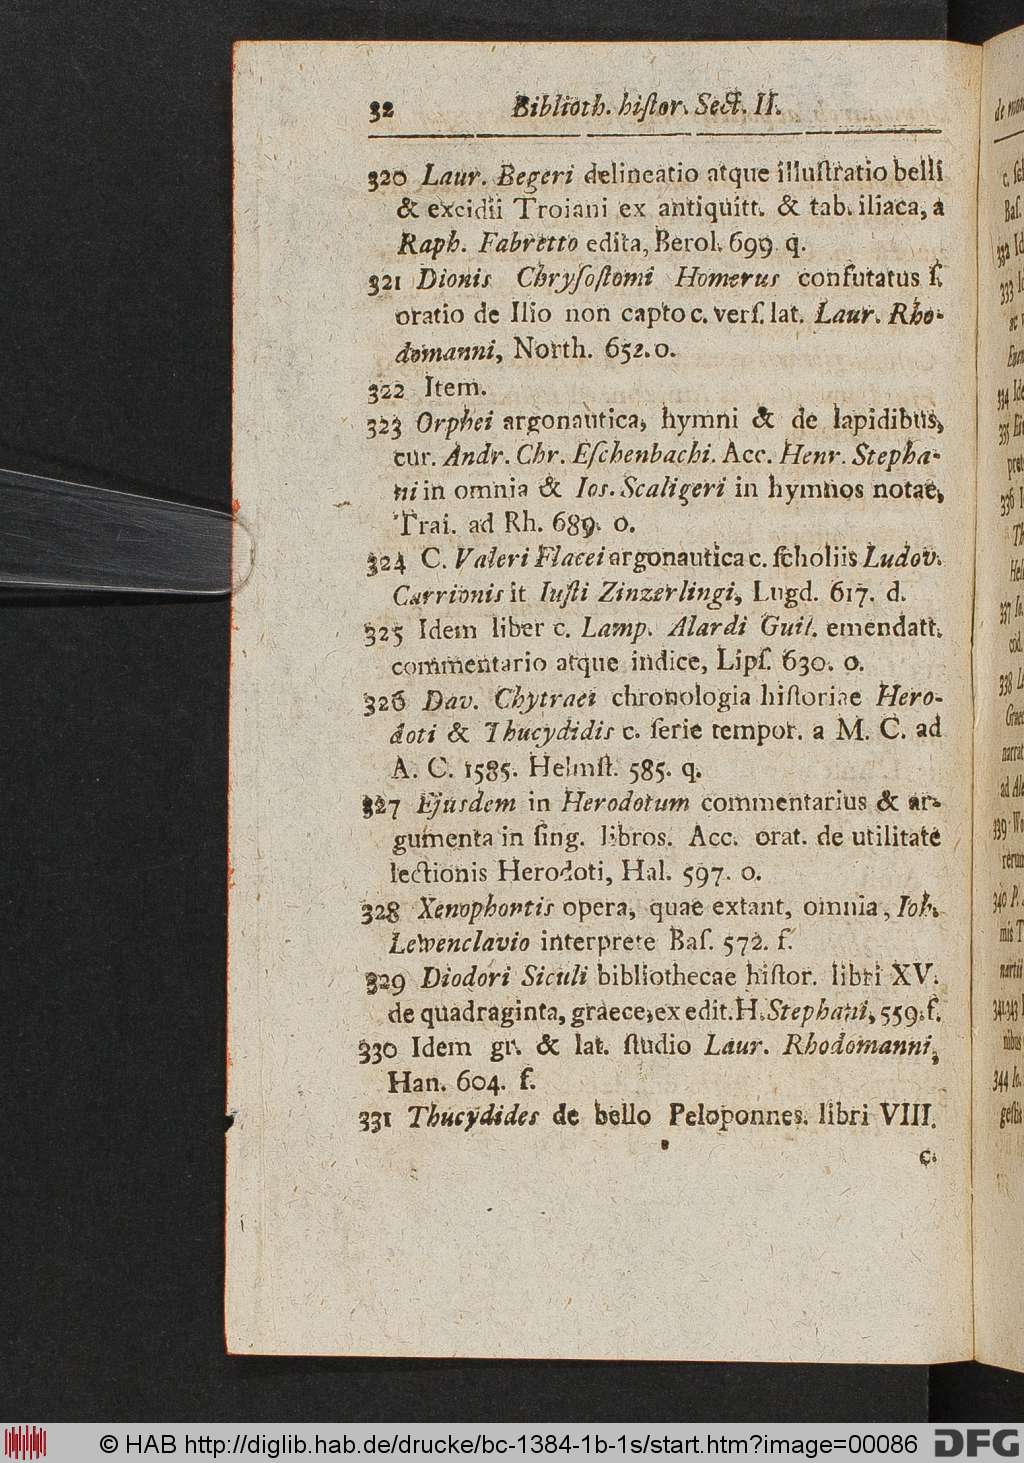 32 Biblioth. hiſtor. Sect. II.
320 Laur. Begeri delineatio atque illuſtratio belli
& excidii Troiani ex antiquitt. & tab. iliaca, a
Raph. Fabretto edita, Berol. 699. q.
321 Dionis Chryſoſtomi Homerus confutatus ſ.
oratio de Ilio non capto c. verſ. lat. Laur. Rho-
domanni, North. 652. o.
322 Item.
323 Orphei argonautica, hymni & de lapidibus,
cur. Andr. Chr. Eſchenbachi. Acc. Henr. Stepha-
ni in omnia & Ios. Scaligeri in hymnos notae,
Trai. ad Rh. 689. o.
324 C. Valeri Flacci argonautica c. ſcholiis Ludov.
Carrionis it Iuſti Zinzerlingi, Lugd. 617. d.
325 Idem liber c. Lamp. Alardi Guil. emendatt.
commentario atque indice, Lipſ. 630. o.
326 Dav. Chytraei chronologia hiſtoriae Hero-
doti & Thucydidis c. ſerie tempor. a M. C. ad
A. C. 1585. Helmſt. 585. q.
327 Ejusdem in Herodotum commentarius & ar-
gumenta in ſing. libros. Acc. orat. de utilitate
lectionis Herodoti, Hal. 597. o.
328 Xenophontis opera, quae extant, omnia, Ioh.
Lewenclavio interprete Baſ. 572. f.
329 Diodori Siculi bibliothecae hiſtor. libri XV.
de quadraginta, graece, ex edit. H. Stephani, 559. f.
330 Idem gr. & lat. ſtudio Laur. Rhodomanni,
Han. 604. f.
331 Thucydides de bello Peloponnes. libri VIII.
c.
de
c.
Baſ.
332 Id
333
334 Ide
335
336
337
338
339
340 P.
341-343
344 Io.
© HAB http://diglib.hab.de/drucke/bc-1384-1b-1s/start.htm?image=00086
DFG